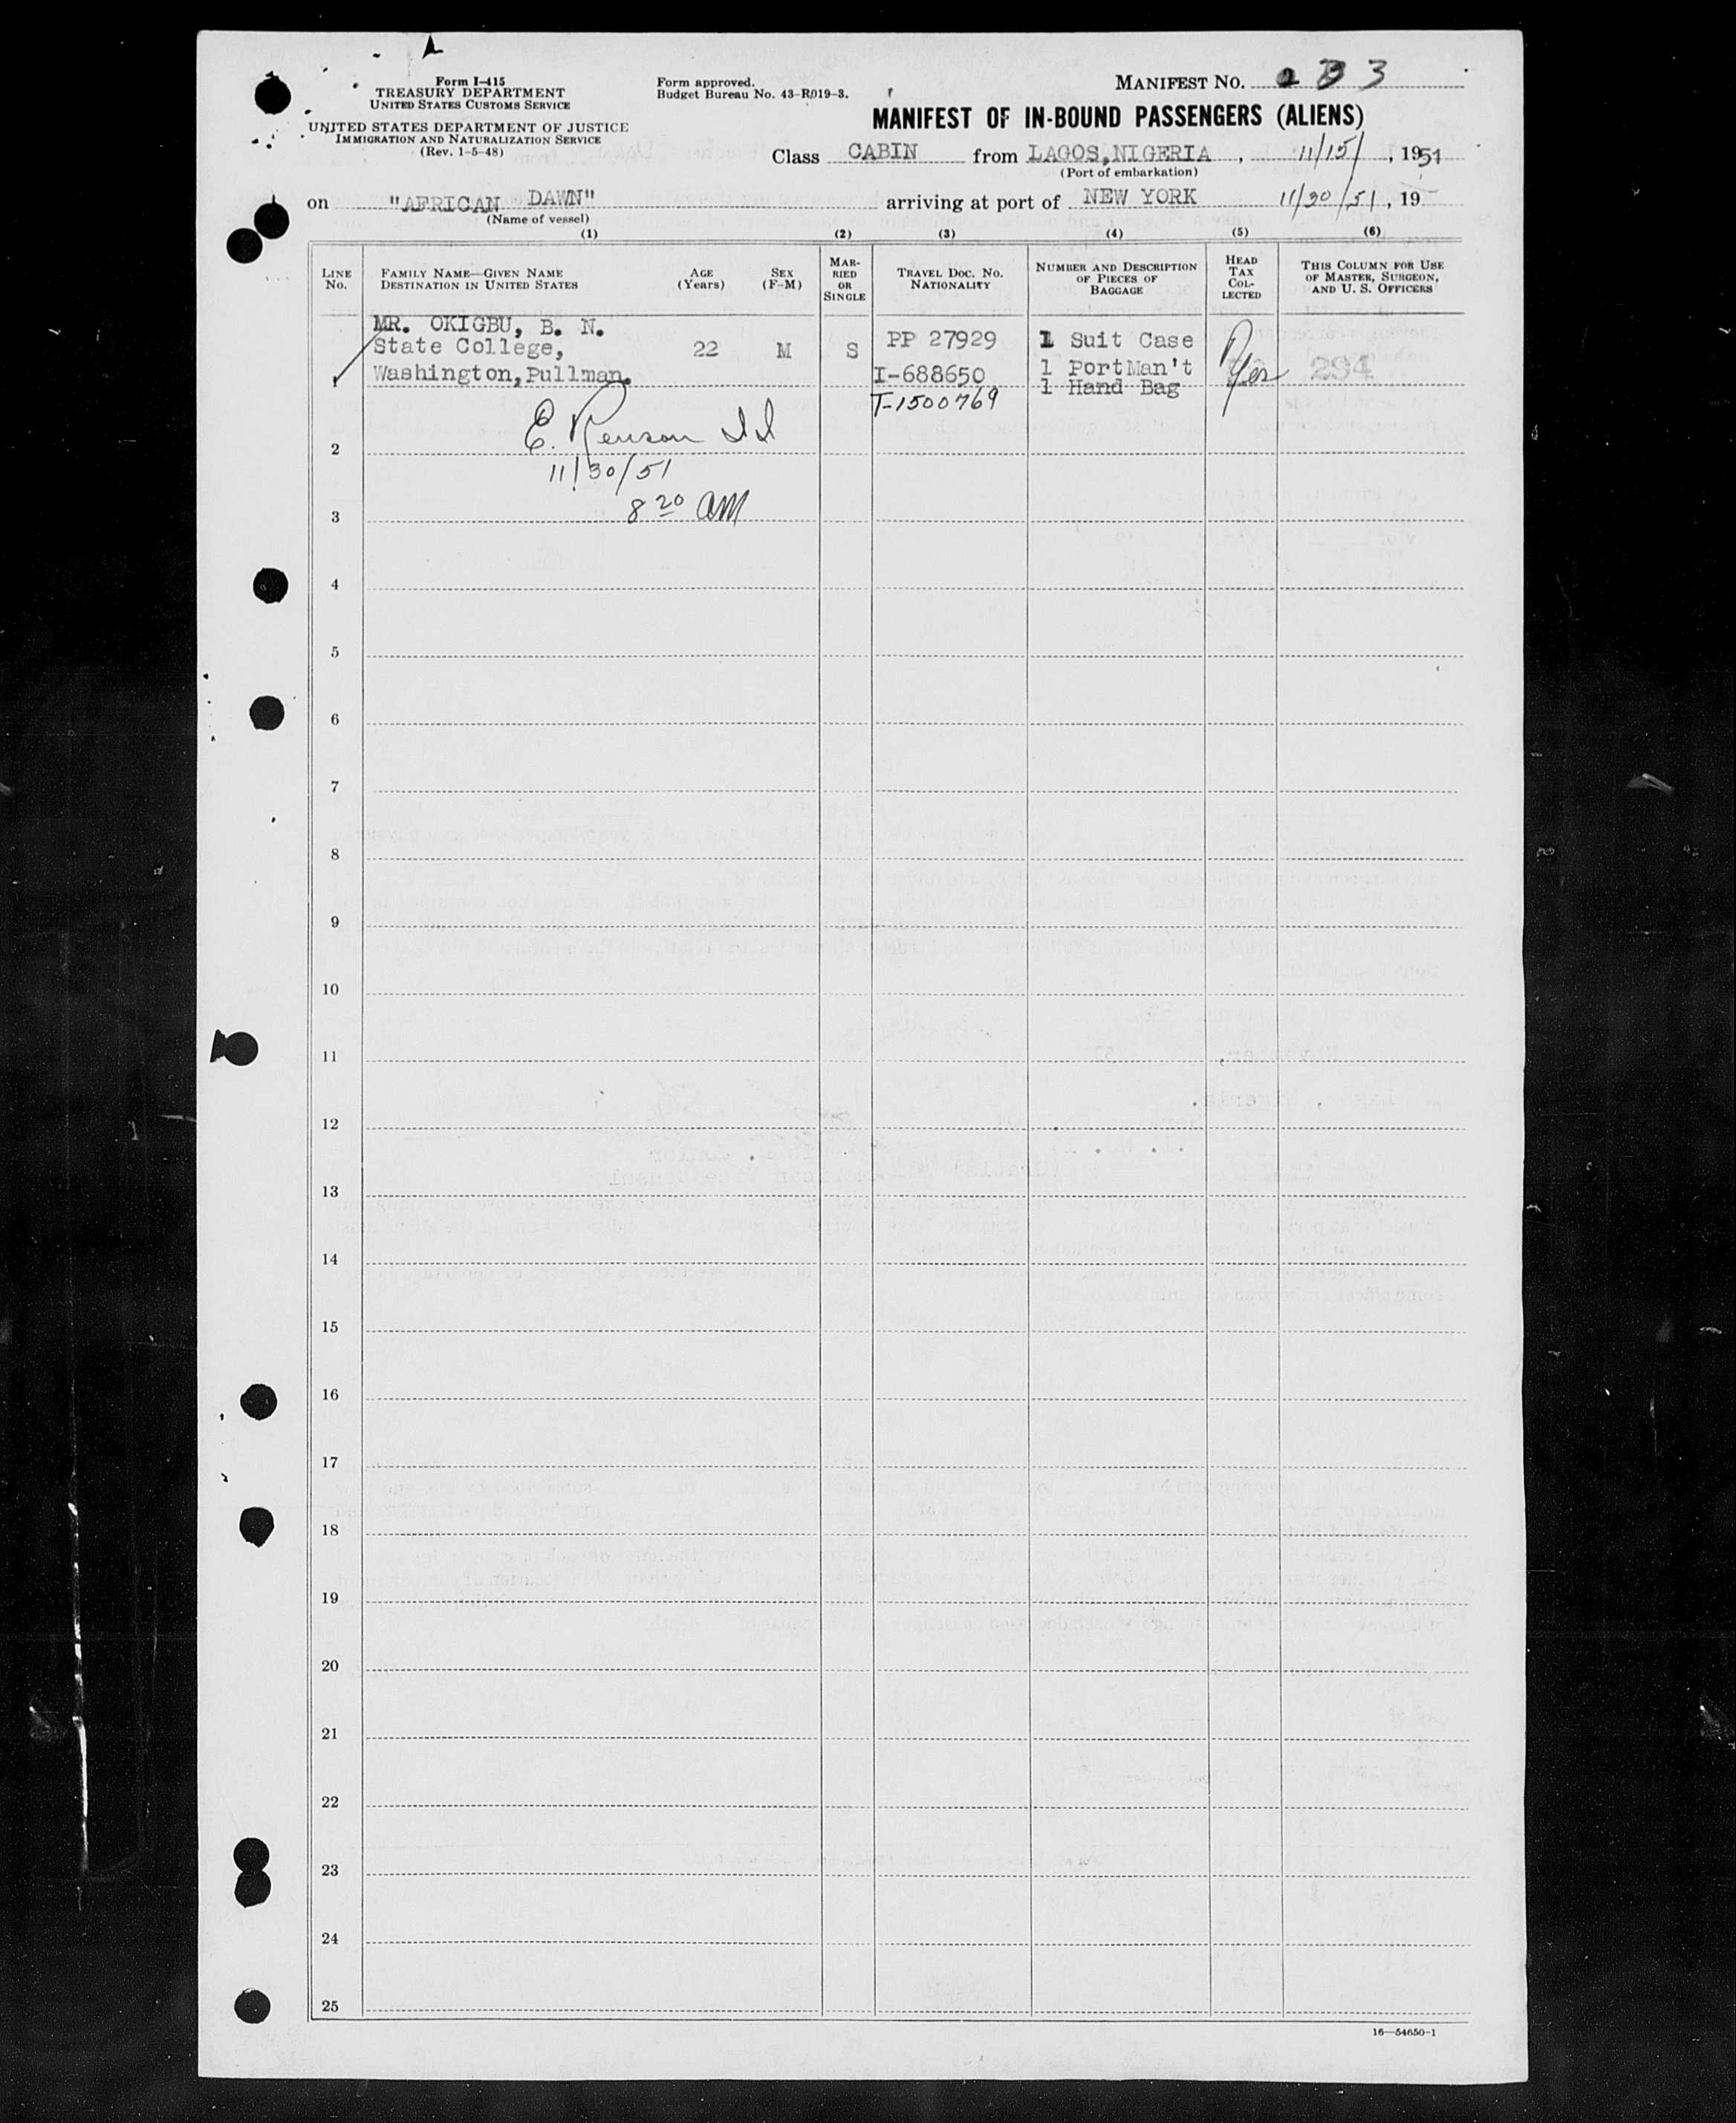 Form I-415
TREASURY DEPARTMENT
UNITED STATES CUSTOMS SERVICE
UNITED STATES DEPARTMENT OF JUSTICE
IMMIGRATION AND NATURALIZATION SERVICE
(Rev. 1-5-48)
Form approved.
Budget Bureau No. 43-R019-3.
MANIFEST NO. 3
MANIFEST OF IN-BOUND PASSENGERS (ALIENS)
Class CABIN from LAGOS, NIGERIA, 11/15/, 1951
(Port of embarkation)
on "AFRICAN DAWN" arriving at port of NEW YORK 11/30/51, 19
(Name of vessel)
(1) (2) (3) (4) (5) (6)
LINE NO.
FAMILY NAME—GIVEN NAME
DESTINATION IN UNITED STATES
AGE (Years)
SEX (F-M)
MARRIED OR SINGLE
TRAVEL DOC. NO.
NATIONALITY
NUMBER AND DESCRIPTION
OF PIECES OF
BAGGAGE
HEAD TAX COLLECTED
THIS COLUMN FOR USE
OF MASTER, SURGEON,
AND U. S. OFFICERS
MR. OKIGBU, B. N.
State College, 22 M S PP 27929 1 Suit Case
1 Washington, Pullman. I-688650 1 PortMan't Yes 294
T-1500769 1 Hand Bag
2
11/30/51
3 8 20 AM
4
5
6
7
8
9
10
11
12
13
14
15
16
17
18
19
20
21
22
23
24
25
16—54650-1